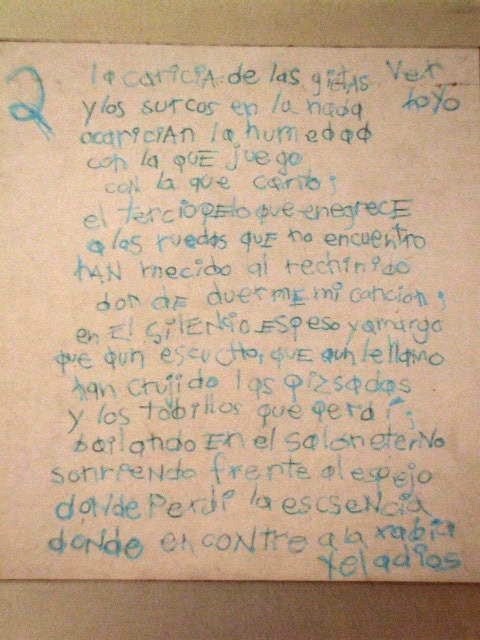 2
la cariciA de las gietas
y los surcos en la nada
acariciAN la humedad
con la quE juego
coN la que canto;
el terciopElo que enegrecE
a las ruedas quE no encuentro
hAN mecido al rechinido
don dE duermE mi cancion;
en El SilENcio Espeso y amargo
que aun escucho, quE aun le llamo
han crujido las pizsadas
y los tobillos que perdí;
bailando En el salon eterNo
sonriENdo frente al espejo
doNde Perdí la escsENcia
doNde encoNtre a la rabia
y el adios
Ver